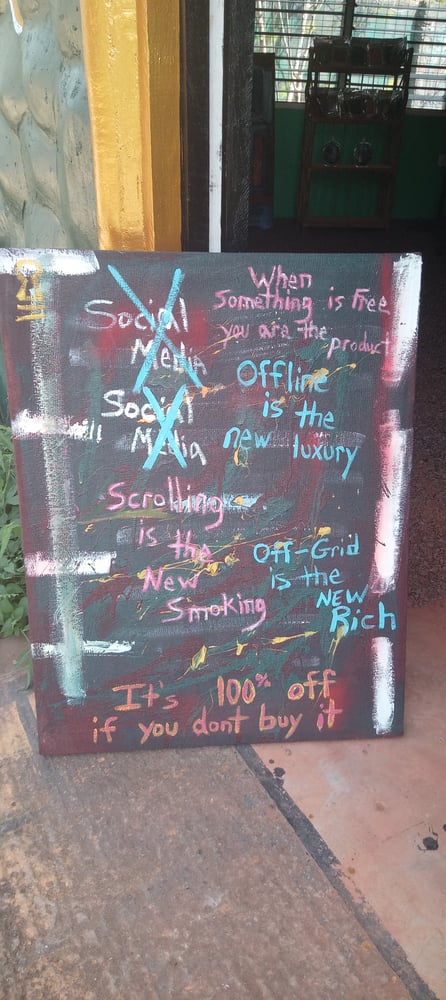 Social
Media
Social
Media
When
Something is Free
you are the
product
Offline
is the
new luxury
Scrolling
is the
New
Smoking
Off-Grid
is the
NEW
Rich
It's 100% off
if you dont buy it